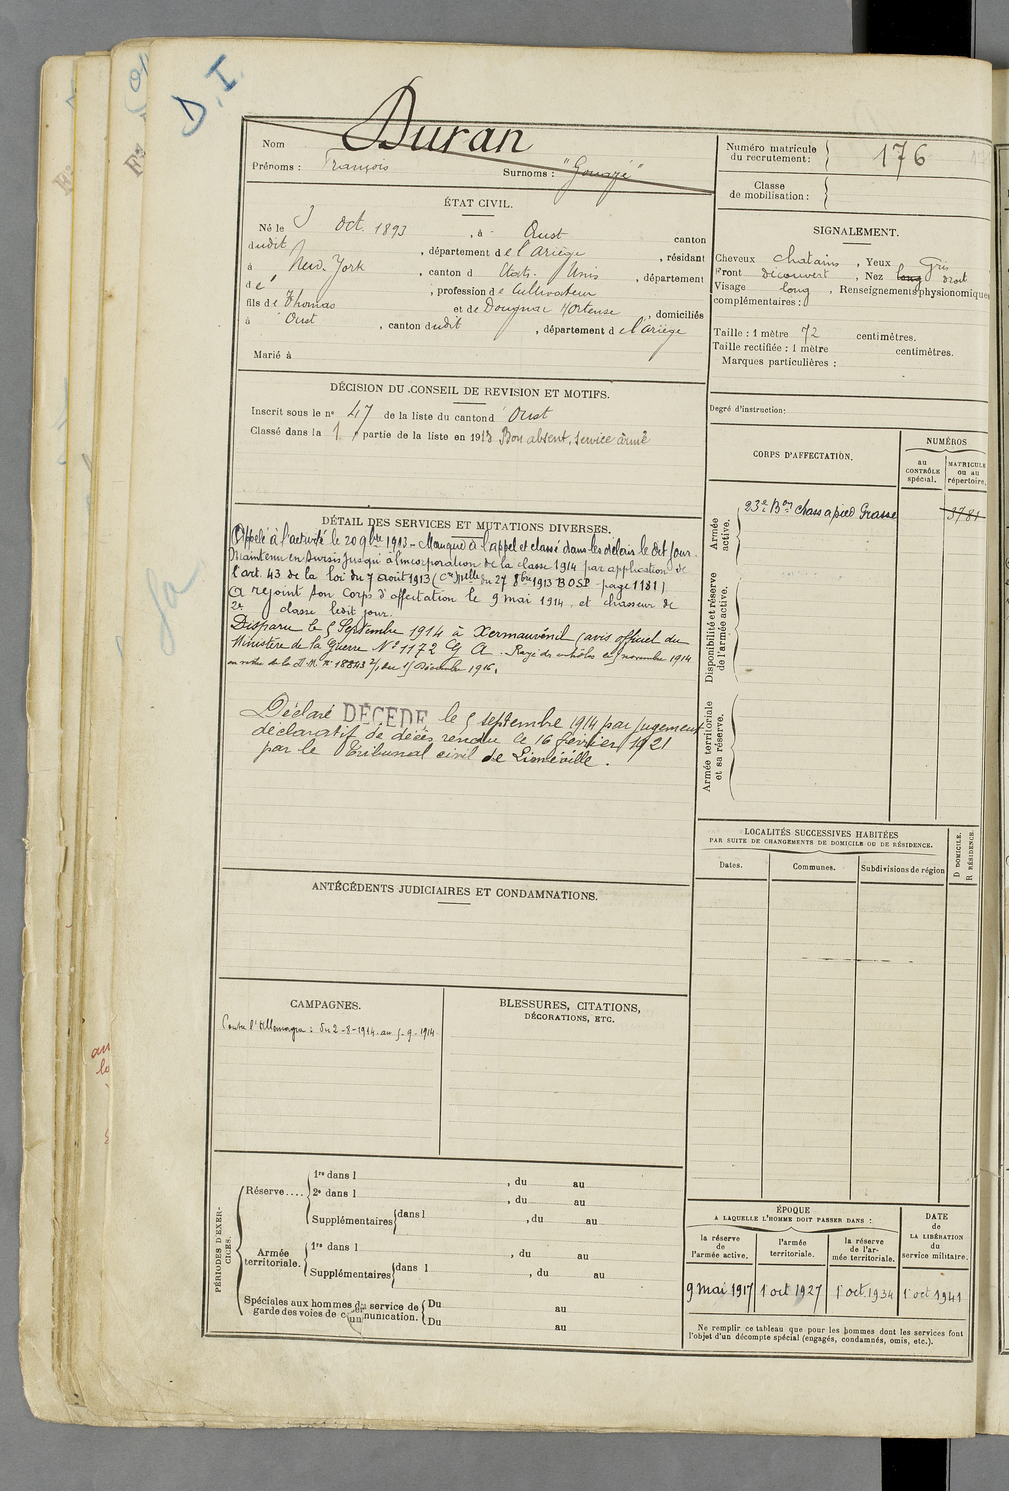 D.I
Nom Duran
Prénoms : François Surnoms : "Gouazé"
Numéro matricule du recrutement : 176
Classe de mobilisation :
ÉTAT CIVIL.
Né le 3 Oct. 1893, à Oust canton
dudit, département de l'Ariège, résidant
à New-York, canton d États-Unis, département
d é, profession de Cultivateur
fils de Thomas et de Dougnac Hortense, domiciliés
à Oust, canton dudit, département de l'Ariège
Marié à
SIGNALEMENT.
Cheveux chatains, Yeux Gris
Front découvert, Nez long droit
Visage long, Renseignements physionomiques
complémentaires :
Taille : 1 mètre 72 centimètres.
Taille rectifiée : 1 mètre centimètres.
Marques particulières :
DÉCISION DU CONSEIL DE REVISION ET MOTIFS.
Inscrit sous le n° 47 de la liste du canton d Oust
Classé dans la 1 partie de la liste en 1913 Bon absent, service armé
Degré d'instruction :
CORPS D'AFFECTATION.
NUMÉROS
au CONTRÔLE spécial.
MATRICULE ou au répertoire.
Armée active.
23e Bon Chass a pied Grasse 3781
Disponibilité et réserve de l'armée active.
Armée territoriale et sa réserve.
DÉTAIL DES SERVICES ET MUTATIONS DIVERSES.
Appelé à l'activité le 20 9bre 1913 - Manque à l'appel et classé dans les délais le dit jour.
Maintenu en Sursis jusqu'à l'incorporation de la classe 1914 par application de
l'art. 43 de la loi du 7 août 1913 (Cre Melle du 27 8bre 1913 B.O.S.P. page 1181)
A rejoint son corps d'affectation le 9 mai 1914, et chasseur de
2e classe ledit jour.
Disparu le 5 Septembre 1914 à Xermaménil (avis officiel du
Ministère de la Guerre N° 1172 A. Rayé des contrôles le 5 novembre 1914
Décembre 1916.
Déclaré DÉCÉDÉ le 5 septembre 1914 par jugement
déclaratif de décès rendu le 16 février 1921
par le Tribunal civil de Lunéville.
LOCALITÉS SUCCESSIVES HABITÉES
PAR SUITE DE CHANGEMENTS DE DOMICILE OU DE RÉSIDENCE.
Dates. Communes. Subdivisions de région
D DOMICILE.
R RÉSIDENCE.
ANTÉCÉDENTS JUDICIAIRES ET CONDAMNATIONS.
CAMPAGNES.
Contre l'Allemagne : du 2-8-1914 au 5-9-1914
BLESSURES, CITATIONS,
DÉCORATIONS, ETC.
PÉRIODES D'EXERCICES.
Réserve....
1re dans l , du au
2e dans l , du au
Supplémentaires dans l , du au
Armée territoriale.
1re dans l , du au
Supplémentaires dans l , du au
Spéciales aux hommes du service de garde des voies de communication.
Du au
Du au
ÉPOQUE
A LAQUELLE L'HOMME DOIT PASSER DANS :
la réserve de l'armée active.
l'armée territoriale.
la réserve de l'armée territoriale.
DATE de LA LIBÉRATION du service militaire.
9 mai 1917 1 oct 1927 1 oct. 1934 1 oct 1941
Ne remplir ce tableau que pour les hommes dont les services font
l'objet d'un décompte spécial (engagés, condamnés, omis, etc.).